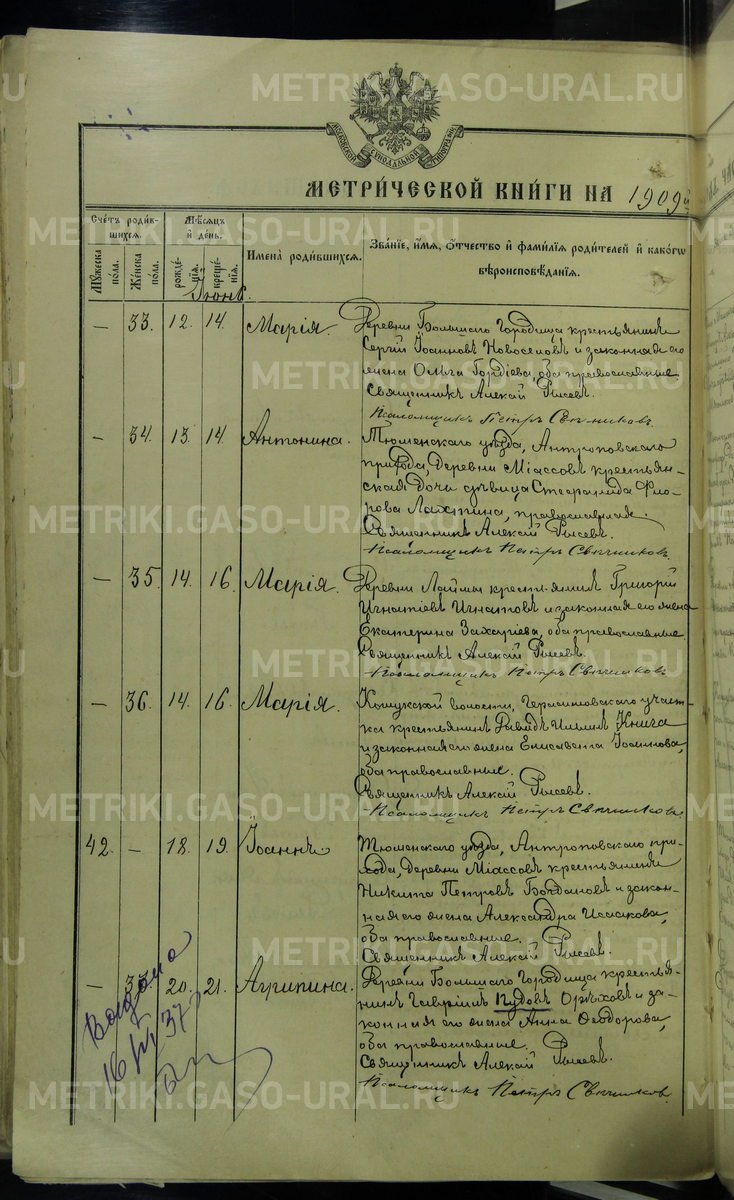 МОСКОВСКОЙ СѴНОДАЛЬНОЙ ТИПОГРАФІИ
МЕТРИ́ЧЕСКОЙ КНИ́ГИ НА 1909й
Сче́тъ роди́в-
шихся.
Му́жеска
по́ла.
Же́нска
по́ла.
Мѣ́сяцъ
и҆ де́нь.
рожде́-
нія.
креще́-
нія.
И҆мена̀ роди́вшихся.
Зва́ніе, и҆́мя, ѻ҆́тчество и҆ фами́лія роди́телей и҆ какѡ́гѡ
вѣроисповѣ́данія.
Іюнь.
— 33. 12. 14. Марія. Деревни Большаго Городища крестьянинъ
Сергій Іоанновъ Новоселовъ и законная его
жена Ольга Гордіева, оба православные.
Священникъ Алексій
Псаломщикъ Петръ Свѣчниковъ.
— 34. 13. 14. Антонина. Тюменскаго уѣзда, Антроповскаго
прихода, деревни Міассовъ крестьян-
ская дочь дѣвица Стефанида Фло-
рова Лахтина, православная.
Священникъ Алексій
Псаломщикъ Петръ Свѣчниковъ.
— 35. 14. 16. Марія. Деревни Лаймы крестьянинъ Григорій
Игнатіевъ Игнатовъ и законная его жена
Екатерина Захаріева, оба православные.
Священникъ Алексій
Псаломщикъ Петръ Свѣчниковъ.
— 36. 14. 16. Марія. Кошукской волости, Герасимовскаго участ-
ка крестьянинъ Давидъ Ильинъ Книга
и законная его жена Елисавета Іоаннова,
оба православные.
Священникъ Алексій
Псаломщикъ Петръ Свѣчниковъ.
42. — 18. 19. Іоаннъ Тюменскаго уѣзда, Антроповскаго при-
хода, деревни Міассовъ крестьянинъ
Никита Петровъ Богдановъ и закон-
ная его жена Александра Исаакова,
оба православные.
Священникъ Алексій
— 37. 20. 21. Агрипина. Деревни Большаго Городища крестья-
нинъ Гавріилъ Пудовъ Орѣховъ и за-
конная его жена Анна Ѳеодорова,
оба православные.
Священникъ Алексій
Псаломщикъ Петръ Свѣчниковъ.
16/VI 37
METRIKI.GASO-URAL.RU
METRIKI.GASO-URAL.RU
METRIKI.GASO-URAL.RU
METRIKI.GASO-URAL.RU
METRIKI.GASO-URAL.RU
METRIKI.GASO-URAL.RU
METRIKI.GASO-URAL.RU
METRIKI.GASO-URAL.RU